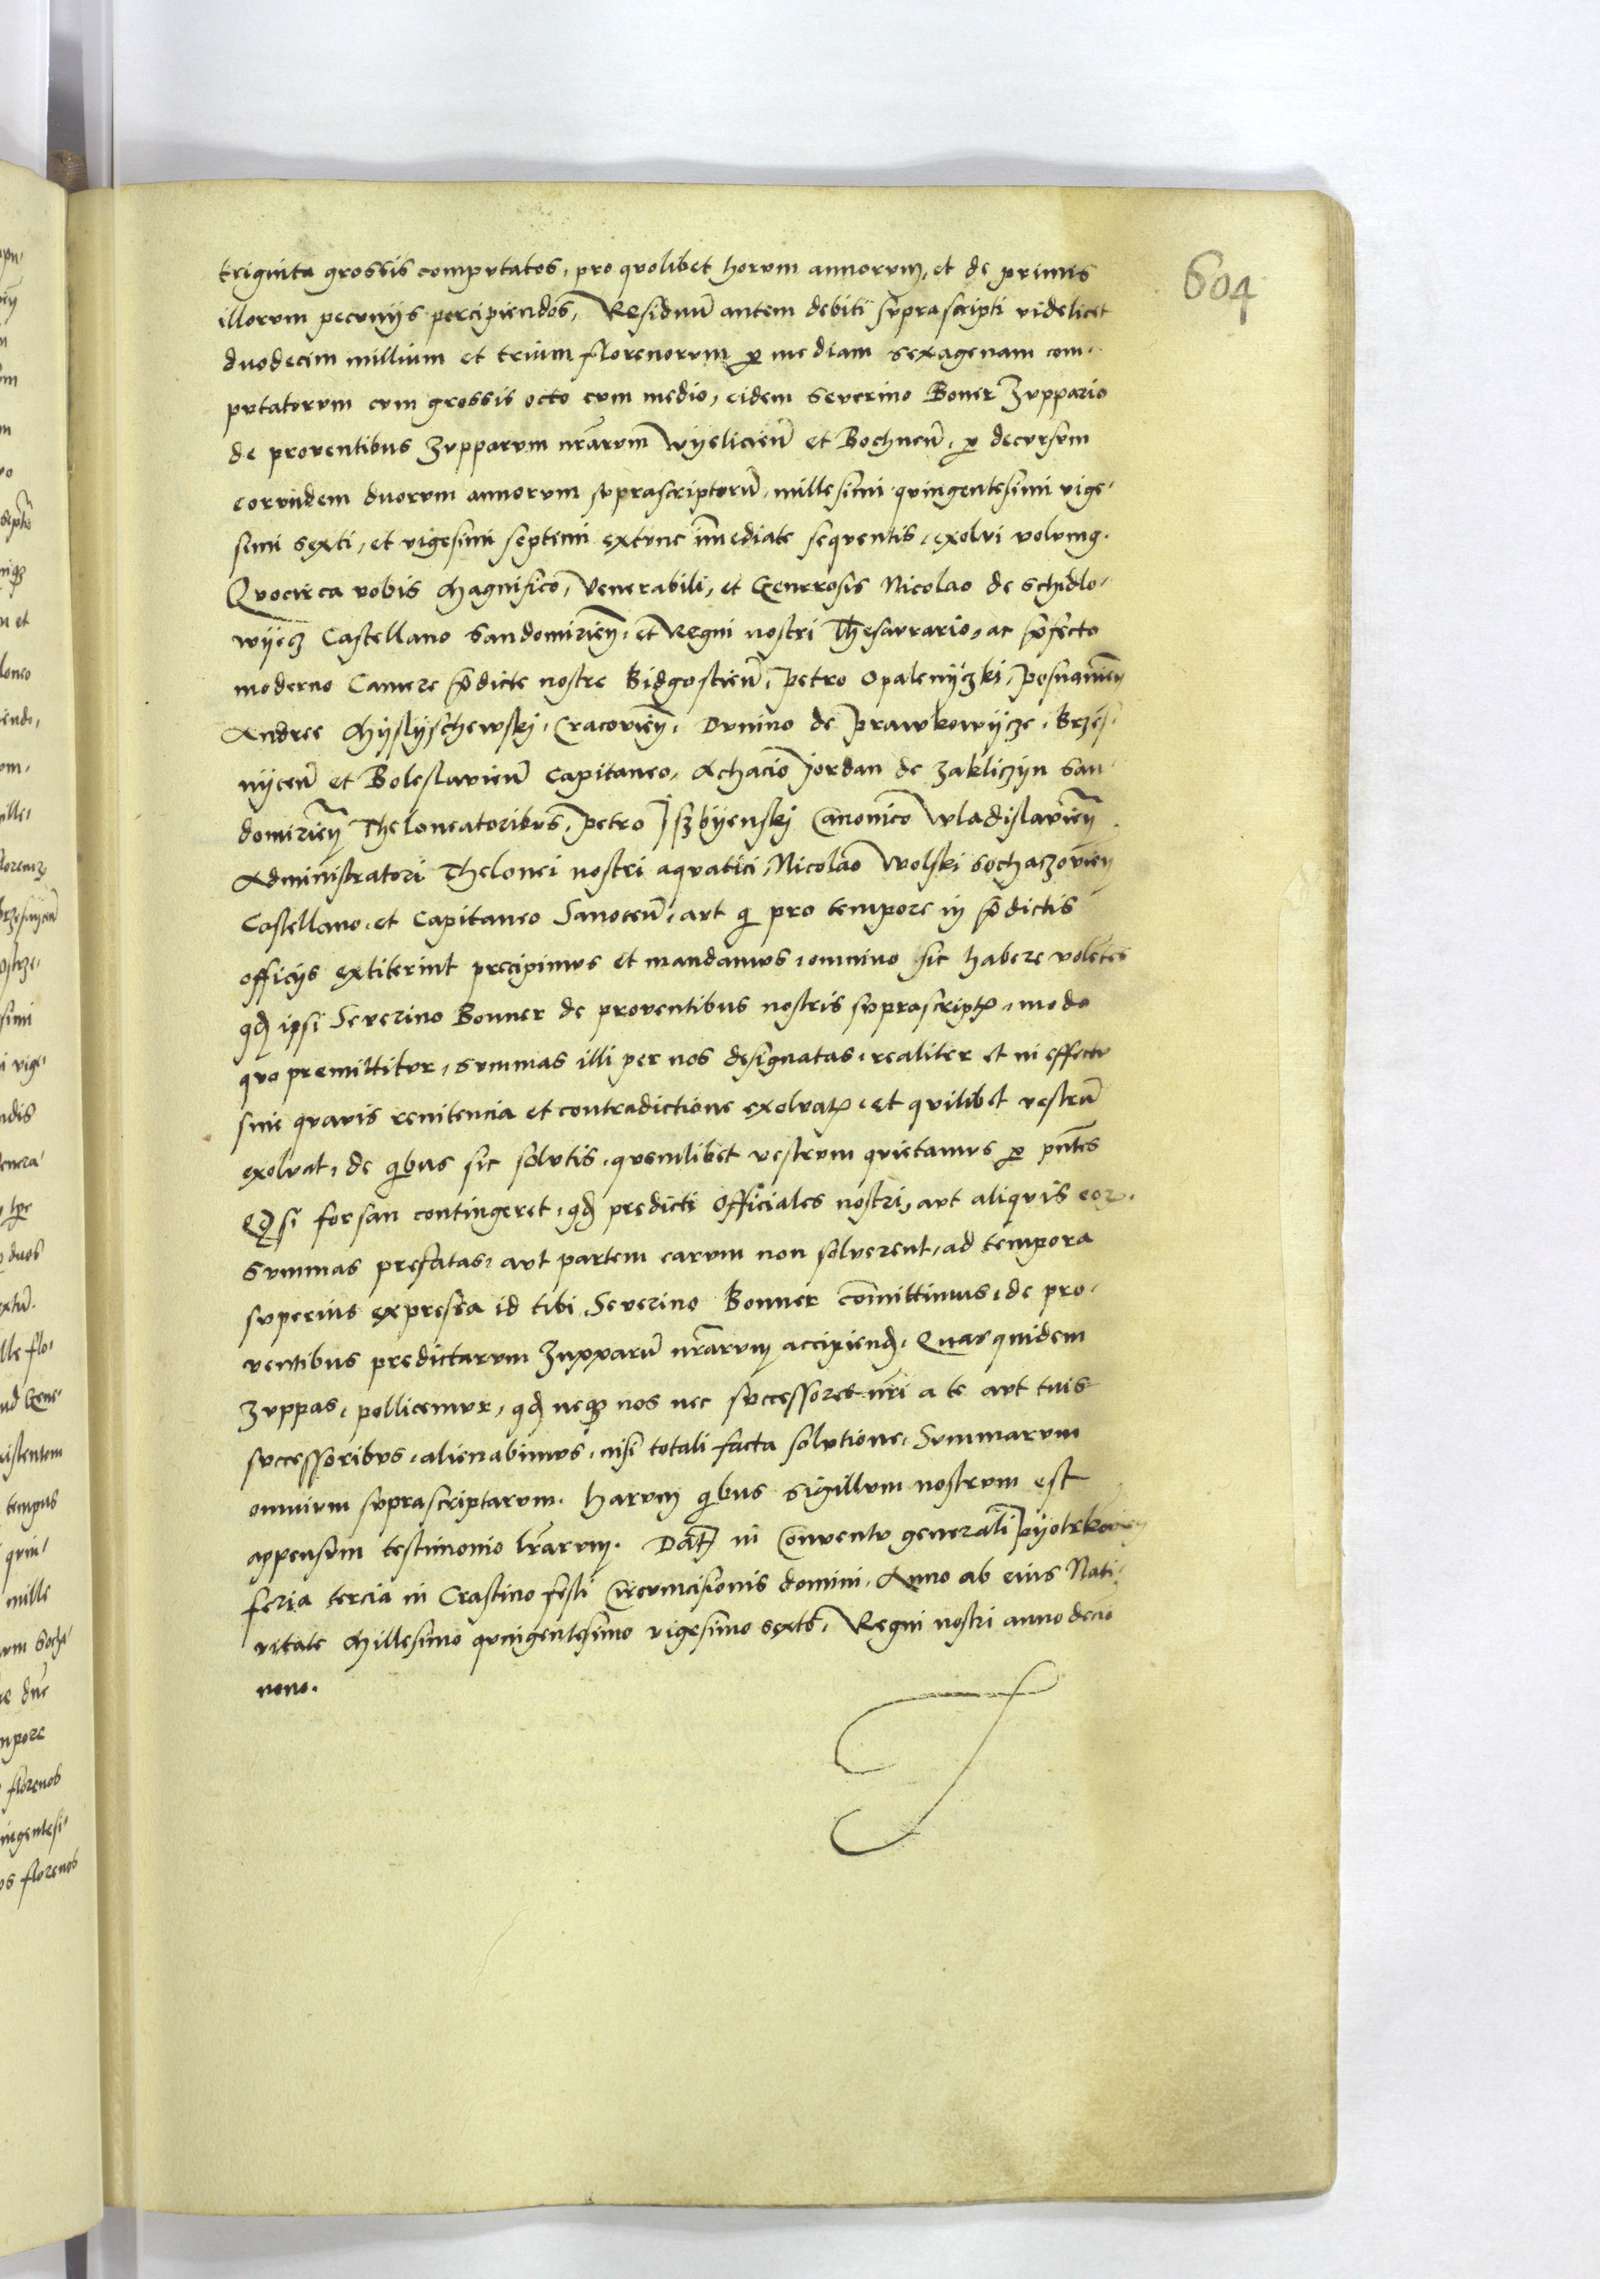 604
triginta grossis computatos, pro quolibet horum annorum, et de primis
illorum pecunijs percipiendos, Residuũ autem debiti suprascripti videlicet
duodecim millium et trium florenorum ꝑ mediam sexagenam com-
putatorum cum grossis octo cum medio, eidem Severino Boner Zuppario
de proventibus Zupparum nr̃arum Wyelicieñ et Bochneñ, ꝑ decursum
eorundem duorum annorum suprascriptorũ, millesimi quingentesimi vige-
simi sexti, et vigesimi septimi extunc im̃ediate sequentis, exolvi volumꝯ.
Quocirca vobis Magnifico, Venerabili, et Generosis Nicolao de Schidlo-
wyecz Castellano Sandomirieñ, et Regni nostri Thesaurario, ac p̃fecto
moderno Camere p̃dicte nostre Bidgostieñ, Petro Opalenyczki, Posnanieñ
Andree Myslyschewski, Cracovieñ, Dunino de Prawkowycze, Brzes-
nyceñ et Boleslavieñ Capitaneo, Achacio Jordan de Zakliczyn San-
domirieñ Theloneatoribus, Petro Jszbyenski Canonico Wladislavieñ
Administratori Thelonei nostri aquatici, Nicolao Wolski Sochaczovieñ
Castellano, et Capitaneo Sanoceñ, aut q̃ pro tempore in p̃dictis
officijs extiterint precipimus et mandamus, omnino sic habere volẽtes
qđ ipsi Severino Bonner de proventibus nostris suprascriptꝭ, modo
quo premittitur, summas illi per nos designatas, realiter et in effectu
sine quavis renitencia et contradictione exolvatꝭ, et quilibet vestrũ
exolvat, de q̃bus sic solutis, quemlibet vestrum quietamus ꝑ pñtes
Qđ si forsan contingeret, qđ predicti Officiales nostri, aut aliquis eoꝝ.
summas prefatas, aut partem earum non solverent, ad tempora
superius expressa id tibi Severino Bonner com̃ittimus, de pro-
ventibus predictarum Zupparũ nr̃arum accipienđ. Quas quidem
Zuppas, pollicemur, qđ neqꝫ nos nec successores nr̃i a te aut tuis
successoribus, alienabimus, nisi totali facta solutione, Summarum
omnium suprascriptarum. Harum q̃bus sigillum nostrum est
appensum testimonio lr̃arum. Dat̃ in Conventu generali Pyotrkovieñ
feria tercia in Crastino festi Circumcisionis domini, Anno ab eius Nati-
vitate Millesimo quingentesimo vigesimo sexto, Regni nostri anno deciõ
nono.